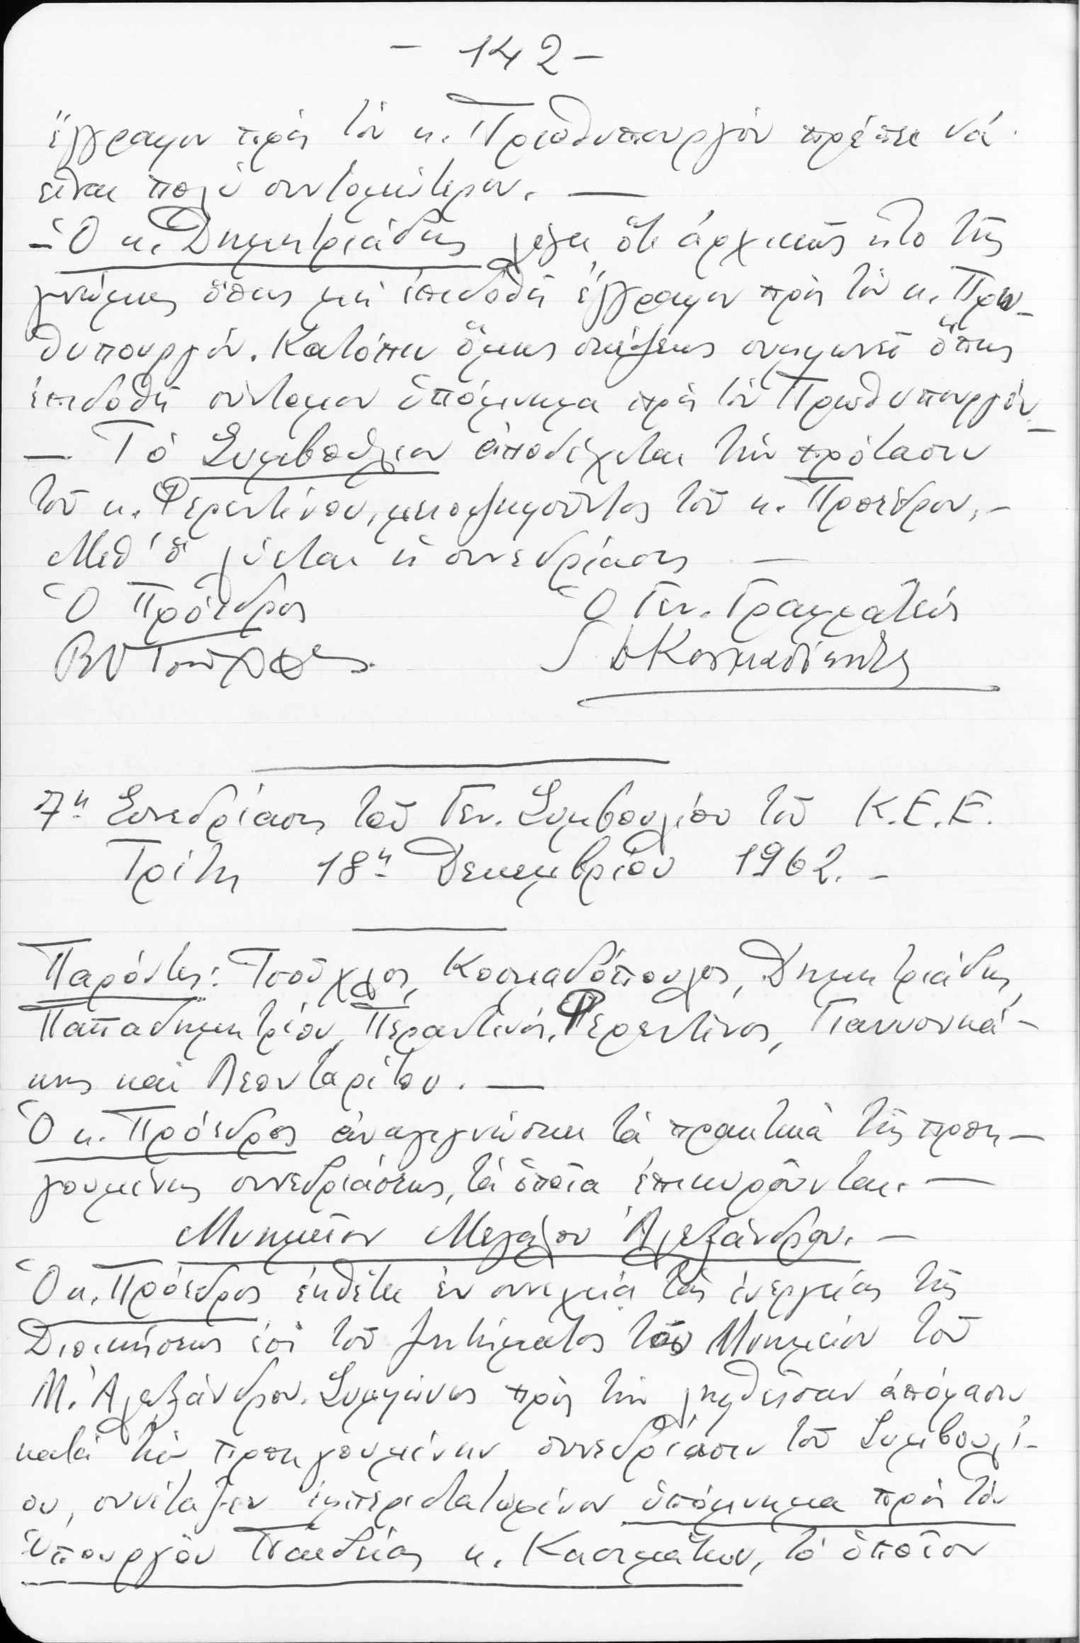 - 142 -
ἔγγραφον πρὸς τὸν κ. Πρωθυπουργὸν πρέπει νὰ
εἶναι πολὺ συντομώτερον. —
- Ὁ κ. Δημητριάδης λέγει ὅτι ἀρχικῶς ἦτο τῆς
γνώμης ὅπως μὴ ἐπιδοθῇ ἔγγραφον πρὸς τὸν κ. Πρω-
θυπουργόν. Κατόπιν ὅμως σκέψεως συμφωνεῖ ὅπως
ἐπιδοθῇ σύντομον ὑπόμνημα πρὸς τὸν Πρωθυπουργόν. -
— Τὸ Συμβούλιον ἀποδέχεται τὴν πρότασιν
τοῦ κ. Φερεντίνου, μειοψηφοῦντος τοῦ κ. Προέδρου. -
Μεθ' ὃ λύεται ἡ συνεδρίασις —
Ὁ Πρόεδρος Ὁ Γεν. Γραμματεύς
7η Συνεδρίασις τοῦ Γεν. Συμβουλίου τοῦ Κ.Ε.Ε.
Τρίτη 18η Δεκεμβρίου 1962. -
Παρόντες: Τσοῦχλος, Κοσμαδόπουλος, Δημητριάδης,
Παπαδημητρίου, Περαντινός, Φερεντίνος, Γιαννουκά-
κης καὶ Λεονταρίτου. —
Ὁ κ. Πρόεδρος ἀναγιγνώσκει τὰ πρακτικὰ τῆς προη-
γουμένης συνεδριάσεως, τὰ ὁποῖα ἐπικυροῦνται. —
Μνημεῖον Μεγάλου Ἀλεξάνδρου. —
Ὁ κ. Πρόεδρος ἐκθέτει ἐν συνεχείᾳ τὰς ἐνεργείας τῆς
Διοικήσεως ἐπὶ τοῦ ζητήματος τοῦ Μνημείου τοῦ
Μ. Ἀλεξάνδρου. Συμφώνως πρὸς τὴν ληφθεῖσαν ἀπόφασιν
κατὰ τὴν προηγουμένην συνεδρίασιν τοῦ Συμβουλί-
ου, συνέταξεν ἐμπεριστατωμένον ὑπόμνημα πρὸς τὸν
Ὑπουργὸν Παιδείας κ. Κασιμάτην, τὸ ὁποῖον